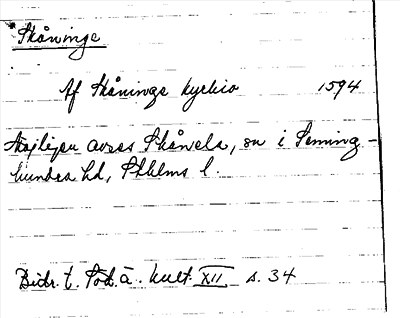 *Skåninge
Af Skåninge kyrkio 1594
Möjligen avses Skånela, sn i Seming-
hundra hd, Sthlms l.
Bidr. t. Söd. ä. kult. XII s. 34